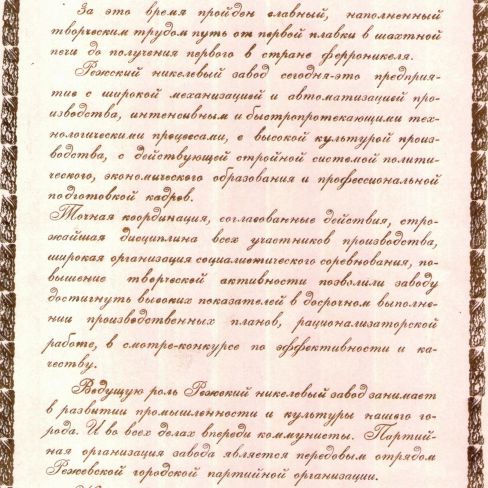 За это время пройден славный, наполненный
творческим трудом путь от первой плавки в шахтной
печи до получения первого в стране ферроникеля.
Режский никелевый завод сегодня-это предприя-
тие с широкой механизацией и автоматизацией про-
изводства, интенсивным и быстропротекающими тех-
нологическими процессами, с высокой культурой произ-
водства, с действующей стройной системой полити-
ческого, экономического образования и профессиональной
подготовкой кадров.
Точная координация, согласованные действия, стро-
жайшая дисциплина всех участников производства,
широкая организация социалистического соревнования, по-
вышение творческой активности позволили заводу
достигнуть высоких показателей в досрочном выполне-
нии производственных планов, рационализаторской
работе, в смотре-конкурсе по эффективности и ка-
честву.
Ведущую роль Режский никелевый завод занимает
в развитии промышленности и культуры нашего го-
рода. И во всех делах впереди коммунисты. Партий-
ная организация завода является передовым отрядом
Режевской городской партийной организации.